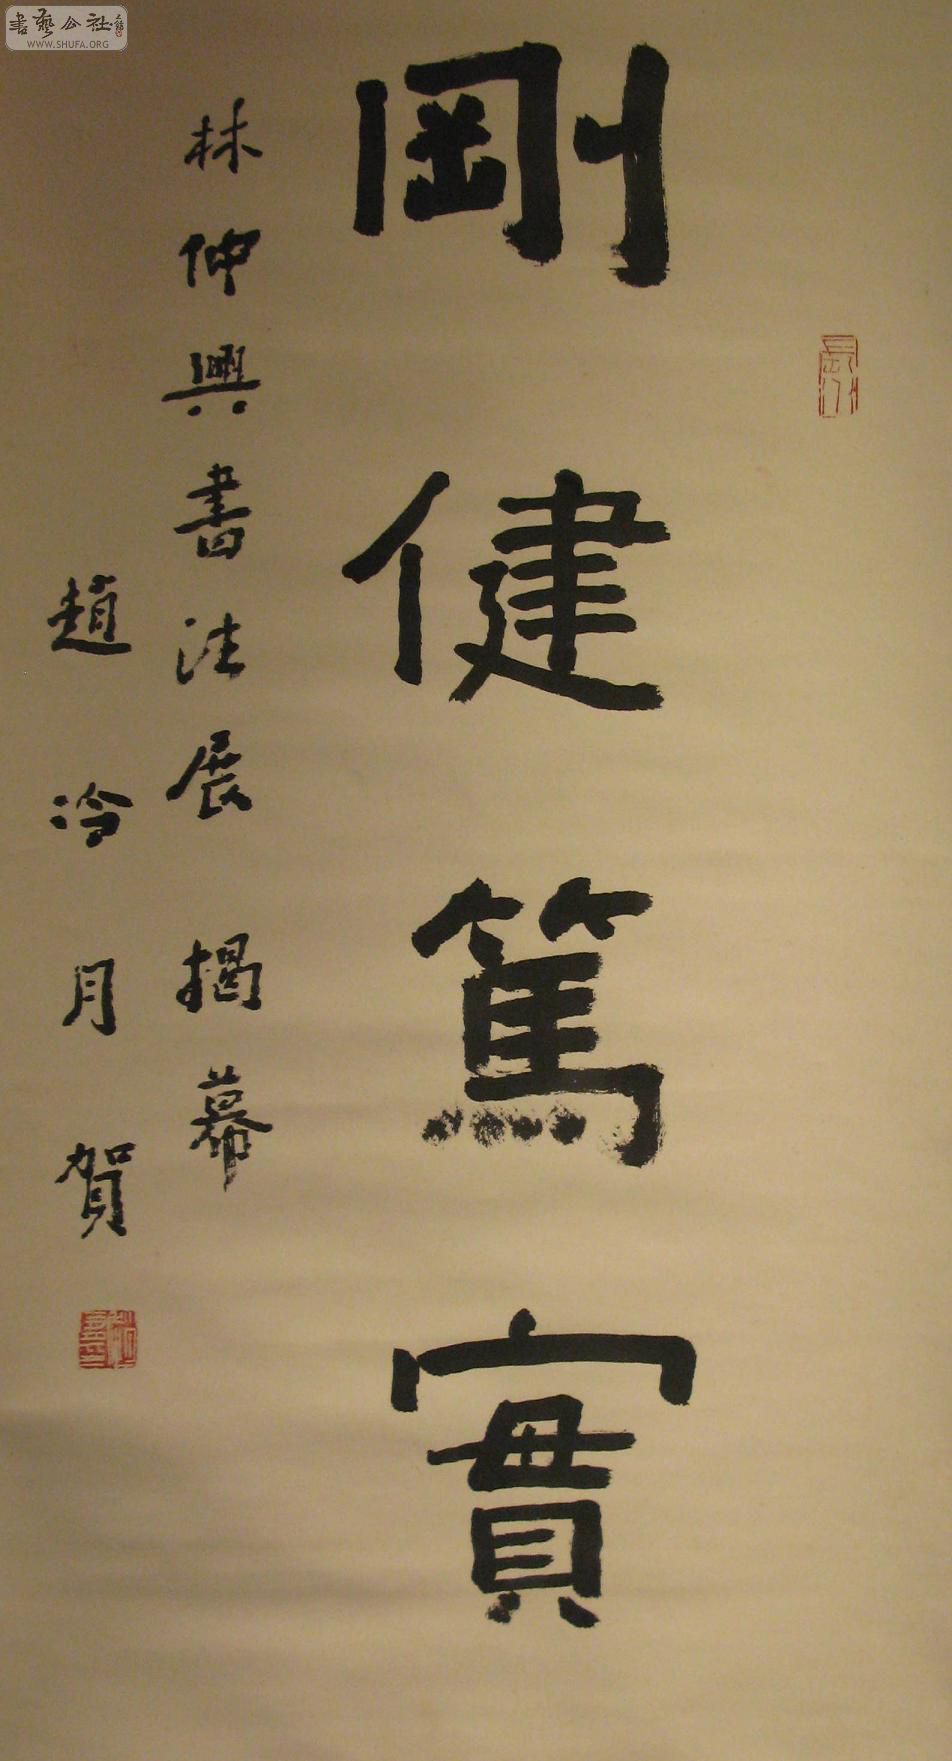 剛健篤實
林仲興書法展揭幕
趙冷月賀
書藝公社
WWW.SHUFA.ORG